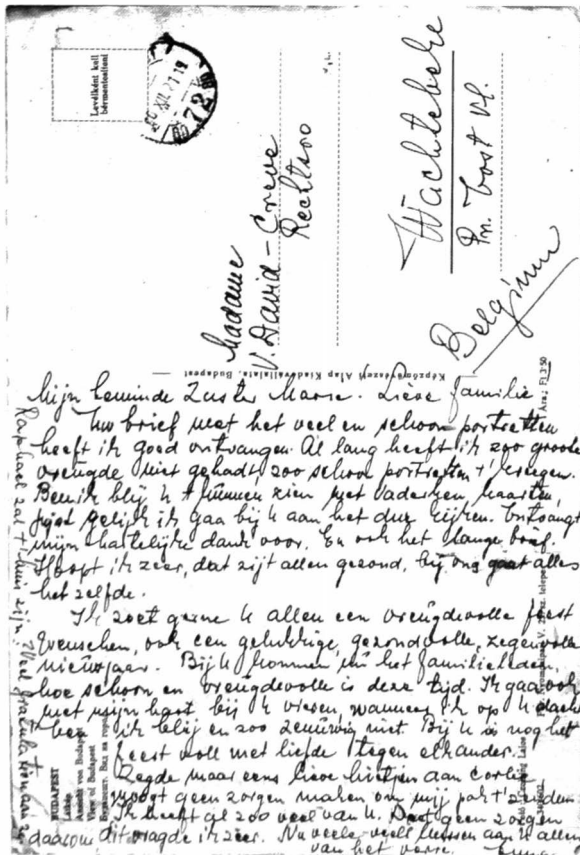 Levélként kell
bérmentesíteni
72
Madame
V. David - Creve
Rechtstro
Wachtebeke
Pr. Oost Vl.
Belginne
Képzőművészeti Alap Kiadóvállalata, Budapest
Mijn beminde Zuster Marie. Lieve familie
Uw brief met het veel en schoon portretten
heeft ik goed ontvangen. Al lang heeft ik zoo groote
vreugde niet gehadt, zoo schoon portretten t'
Ben ik blij U t' kunnen zien met
juist gelijk ik gaa bij U aan het dur kijken. Ontvangt
mijn hartelijke dank voor. En ook het lange brief.
Hoopt ik zeer, dat zijt allen gezond, bij ons gaat alles
het zelfde.
Ik zoet gerne U allen een vreugdevolle feest
wenschen, ook een gelukkige, gezondvolle, zegenvolle
nieuwjaar. Bij U kommen nu het familieleden,
hoe schoon en vreugdevolle is deze tijd. Ik gaa ook
met mijn hart bij U vieren, wanneer ik op U dacht
ben ik blij en zoo zenuwig niet. Bij U is nog het
feest voll met liefde tegen elkander.
Zegde maar eens lieve
moogt geen zorgen maken om mij
Ik heeft al zoo veel van U. Doet geen zorgen
daarom dit vragde ik zeer. Nu veele veele kussen aan U allen
van het verre.
Raphael zal t'huis zijn. Veel gratulatien aan
BUDAPEST
Látkép
Ansicht von Budapest
View of Budapest
Ára: Ft 3·50